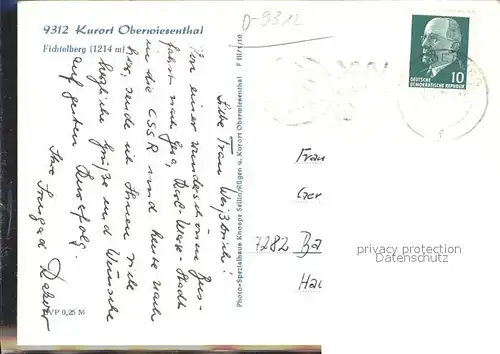 9312 Kurort Oberwiesenthal
Fichtelberg (1214 m)
D-9312
DEUTSCHE
DEMOKRATISCHE REPUBLIK
10
Liebe Frau Weißbrich!
Von einer wunderschönen Zus-
fahrt nach Gera, Karl-Marx-Stadt
in die CSSR und heute nach
hier, sende ich Ihnen viele
herzliche Grüße und Wünsche
auf guten
Ihre Irmgard
EVP 0,25 M
Photo-Spezialhaus Knospe Sellin/Rügen u. Kurort Oberwiesenthal
Frau
Ger
7282 Ba
Hau
privacy protection
Datenschutz